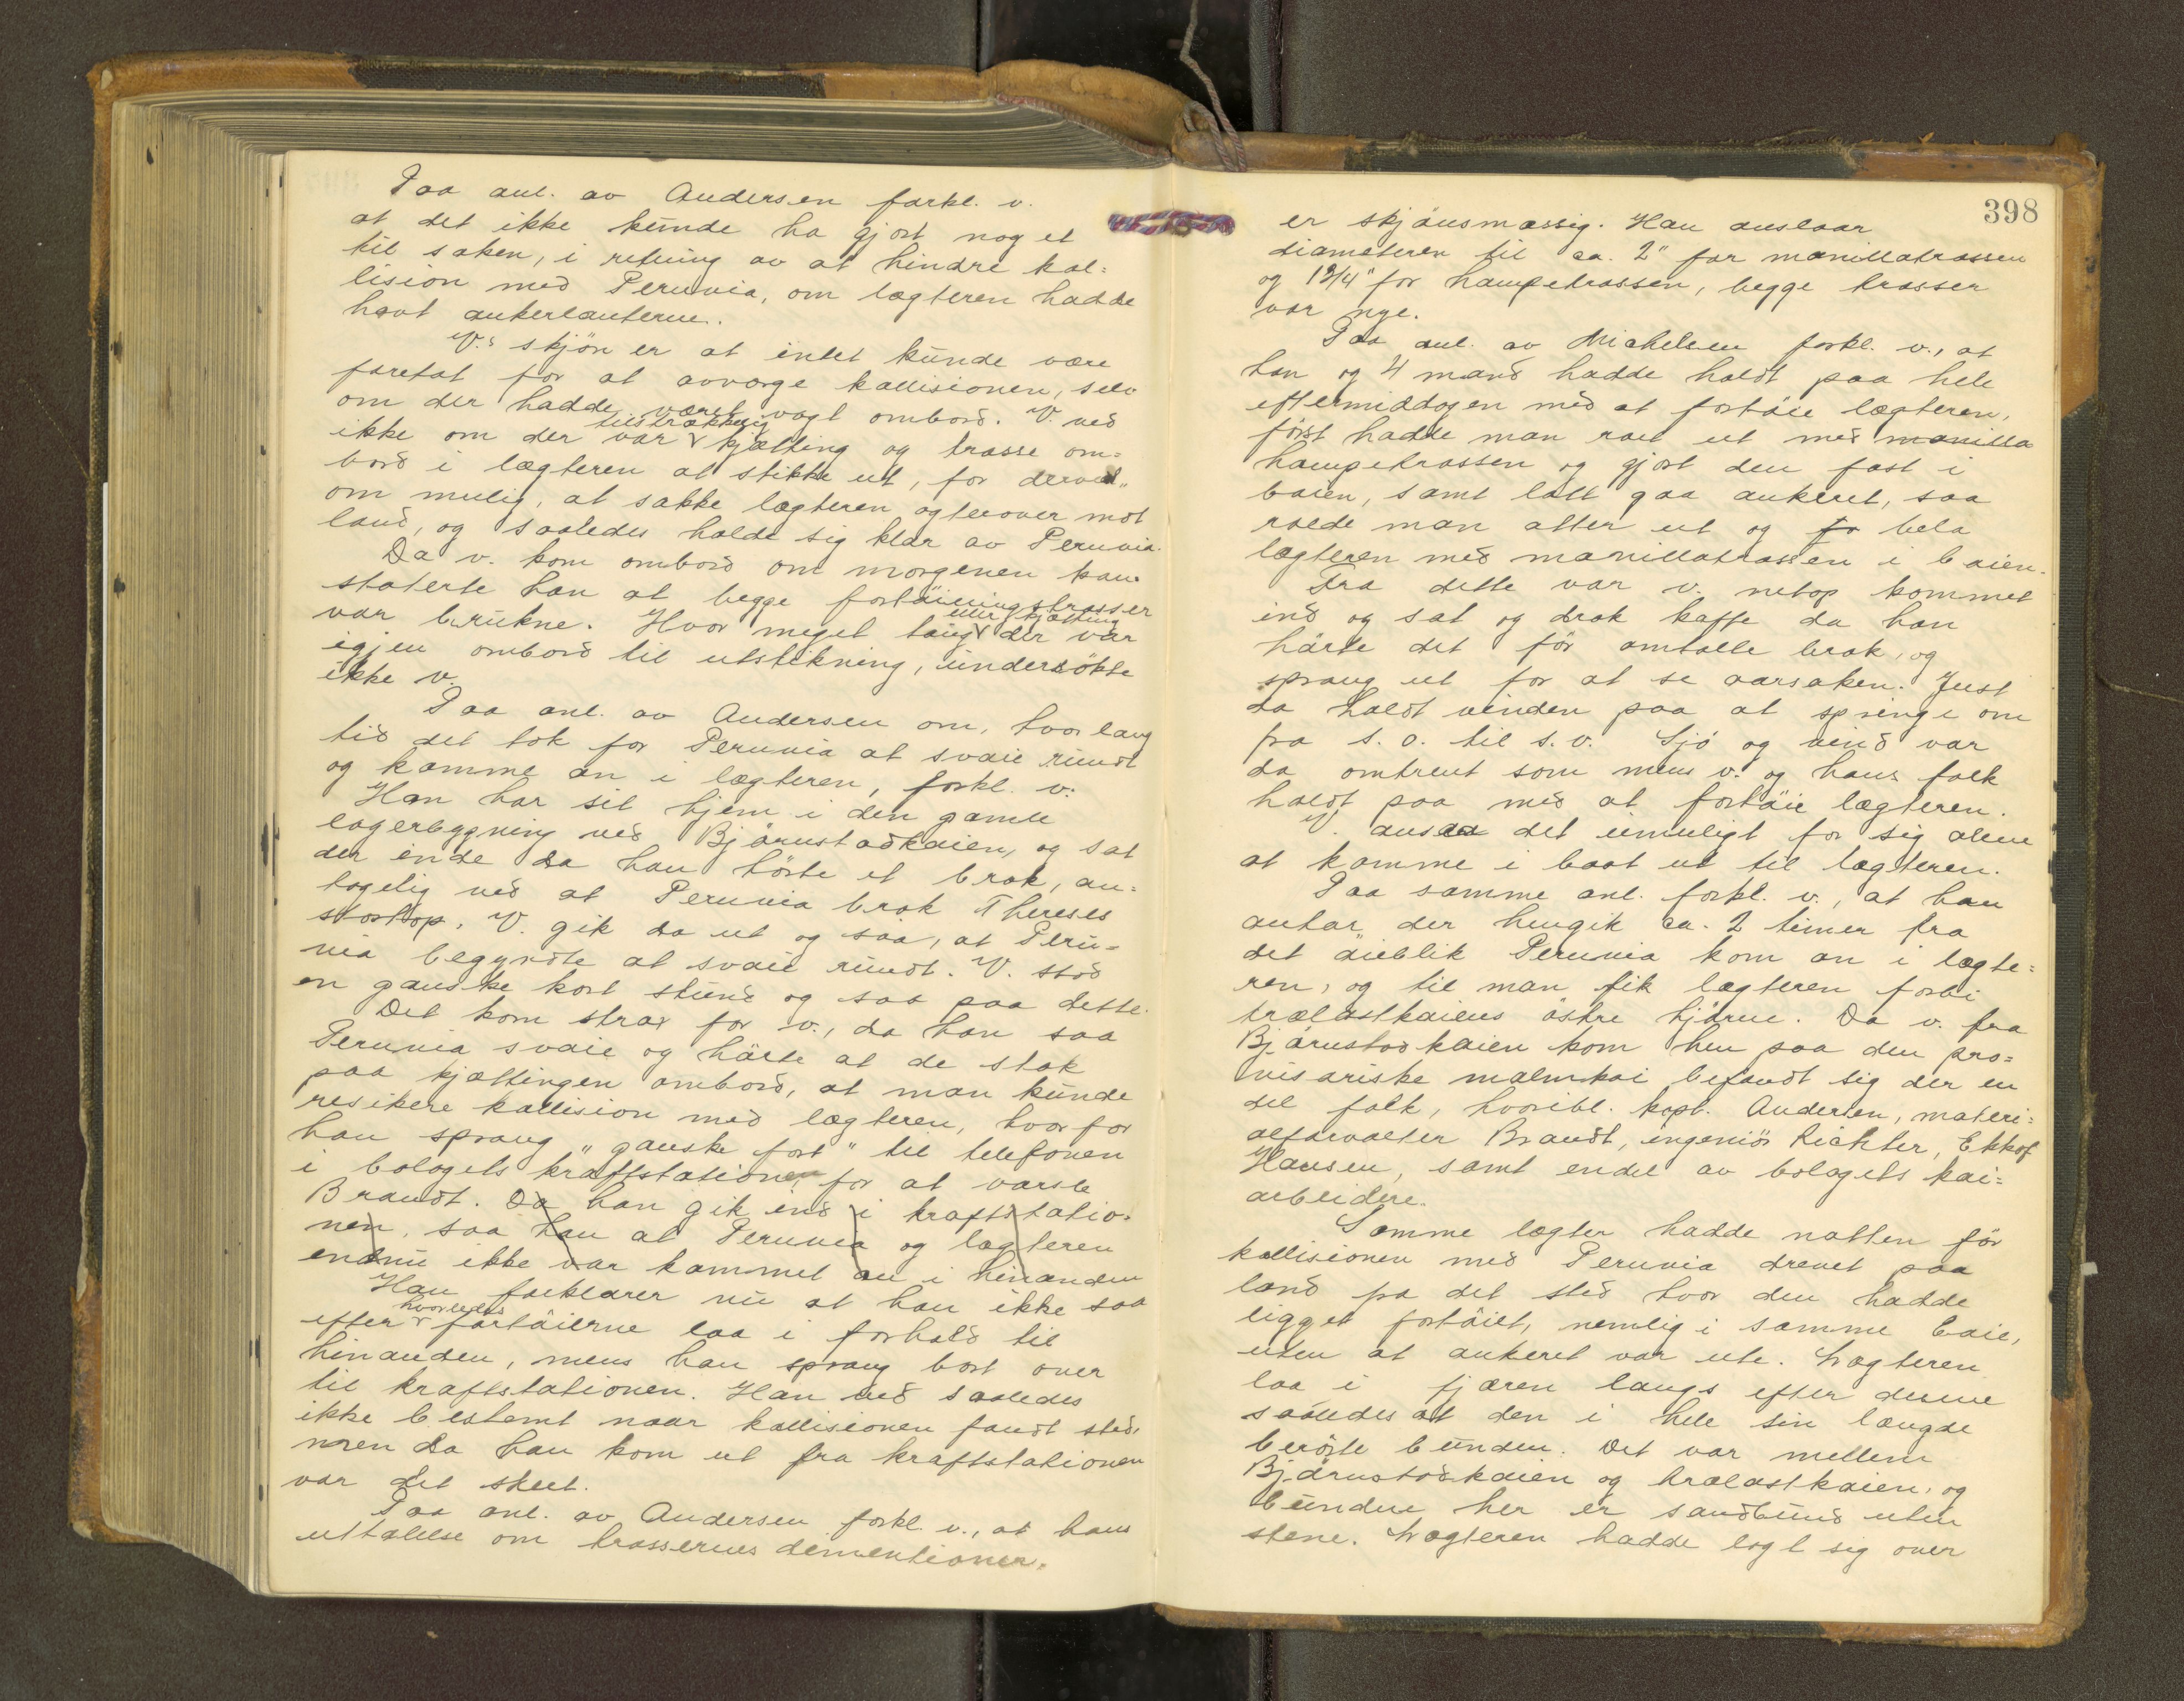 Paa anl. av Andersen forkl. v.
at det ikke kunde ha gjort noget
til saken, i retning av at hindre kol=
lision med Peruvia, om lægteren hadde
havt ankerlanterne.
V.s skjön er at intet kunde være
foretat for at avværge kollisionen, selv
om der hadde været vagt ombord. V. ved
ikke om der var tilstrækkelig kjætting og trosse om=
bord i lægteren at stikke ut, for derved,
om mulig, at sakke lægteren agterover mot
land, og saaledes holde sig klar av Peruvia.
Da v. kom ombord om morgenen kon=
staterte han at begge fortöiningstrosser
var brukne. Hvor meget taug eller kjætting der var
igjen ombord til utstikning, undersökte
ikke v.
Paa anl. av Andersen om, hvor lang
tid det tok for Peruvia at svaie rundt
og komme an i lægteren, forkl. v.
Han har sit hjem i den gamle
lagerbygning ved Bjørnstadkaien, og sat
der inde da han hörte et brak, an=
tagelig ved at Peruvia brak Thereses
stortop. V. gik da ut og saa, at Peru=
via begyndte at svaie rundt. V. stod
en ganske kort stund og saa paa dette.
Det kom strax for v., da han saa
Peruvia svaie og hörte at de stak
paa kjættingen ombord, at man kunde
resikere kollision med lægteren, hvorfor
han sprang "ganske fort" til telefonen
i bolagets kraftstation, for at varsle
Brandt. Da han gik ind i kraftstatio=
nen, saa han at Peruvia og lægteren
endnu ikke var kommet an i hinanden
Han forklarer nu at han ikke saa
efter hvorledes fartöierne laa i forhold til
hinanden, mens han sprang bort over
til kraftstationen. Han ved saaledes
ikke bestemt naar kollisionen fandt sted,
men da han kom ut fra kraftstationen
var det skeet.
Paa anl. av Andersen forkl. v., at hans
uttalelse om trossernes dementioner,
398
er skjönsmæssig. Han anslaar
diameteren til ca. 2" for manillatrossen
og 1 3/4" for hampetrossen, begge trosser
var nye.
Paa anl. av Michelsen forkl. v., at
han og 4 mand hadde holdt paa hele
eftermiddagen med at fortöie lægteren,
först hadde man roet ut med manilla
hampetrossen og gjort den fast i
baien, samt latt gaa ankeret, saa
roede man atter ut og fo bela
lægteren med manillatrossen i baien.
Fra dette var v. netop kommet
ind og sat og drak kaffe da han
hörte det för omtalte brak, og
sprang ut for at se aarsaken. Just
da holdt vinden paa at springe om
fra s.o. til s.v. Sjö og vind var
da omtrent som mens v. og hans folk
holdt paa med at fortöie lægteren.
V. ansaa det umuligt for sig alene
at komme i baat ut til lægteren.
Paa samme anl. forkl. v., at han
antar der hengik ca. 2 timer fra
det öieblik Peruvia kom an i lægte=
ren, og til man fik lægteren forbi
trælastkaiens östre hjörne. Da v. fra
Bjørnstadkaien kom hen paa den pro=
visoriske malmkai befandt sig der en
del folk, hvoribl. kapt. Andersen, materi=
alforvalter Brandt, ingeniör Richter, Ekkof
Hansen, samt endel av bolagets kai=
arbeidere.
Samme lægter hadde natten för
kollisionen med Peruvia drevet paa
land fra det sted hvor den hadde
ligget fortöiet, nemlig i samme baie,
uten at ankeret var ute. Lægteren
laa i fjæren langs efter denne
saaledes at den i hele sin længde
berörte bunden. Det var mellem
Bjørnstadkaien og trælastkaien, og
bunden her er sandbund uten
stene. Lægteren hadde lagt sig over